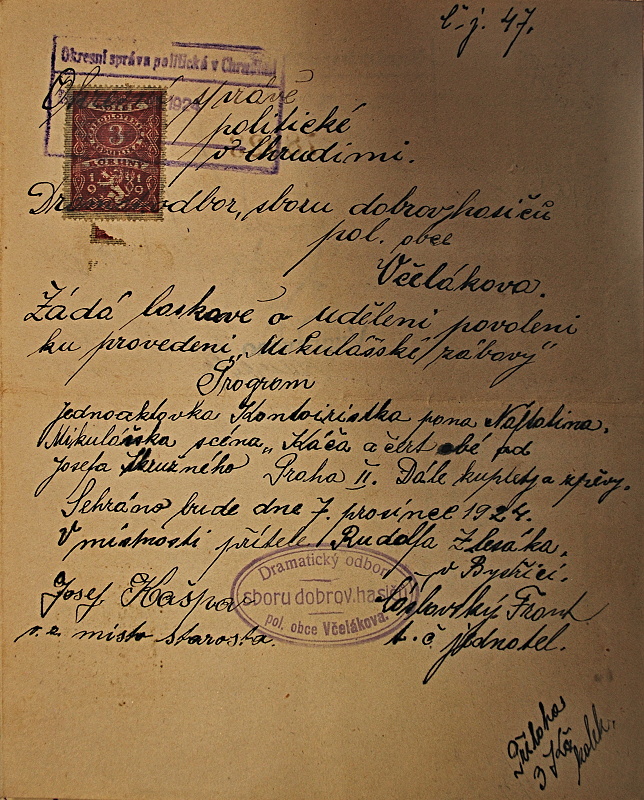 č. j. 47.
Okresní správa politická v Chrudimi
správě
politické
v Chrudimi.
3
KORUNY
1919
Dramat. odbor, sboru dobrov. hasičů
pol. obce
Včelákova.
Žádá laskavě o uděleni povoleni
ku provedeni „Mikulášské zábavy"
Program
Jednoaktovka Kontoiristka pana Naftalina.
Mikulášska scéna „Káča a čert obé od
Josefa Skružného Praha II. Dále kuplety a zpěvy.
Sehráno bude dne 7. prosince 1924.
V mistnosti přítele Rudolfa Zlesáka.
v Bystřici.
Dramatický odbor
sboru dobrov. hasičů
pol. obce Včelákova.
Josef Kašpar
Frant
v. z. místo starosta.
t. č. jednatel.
Příloha
3 Kč
kolek.